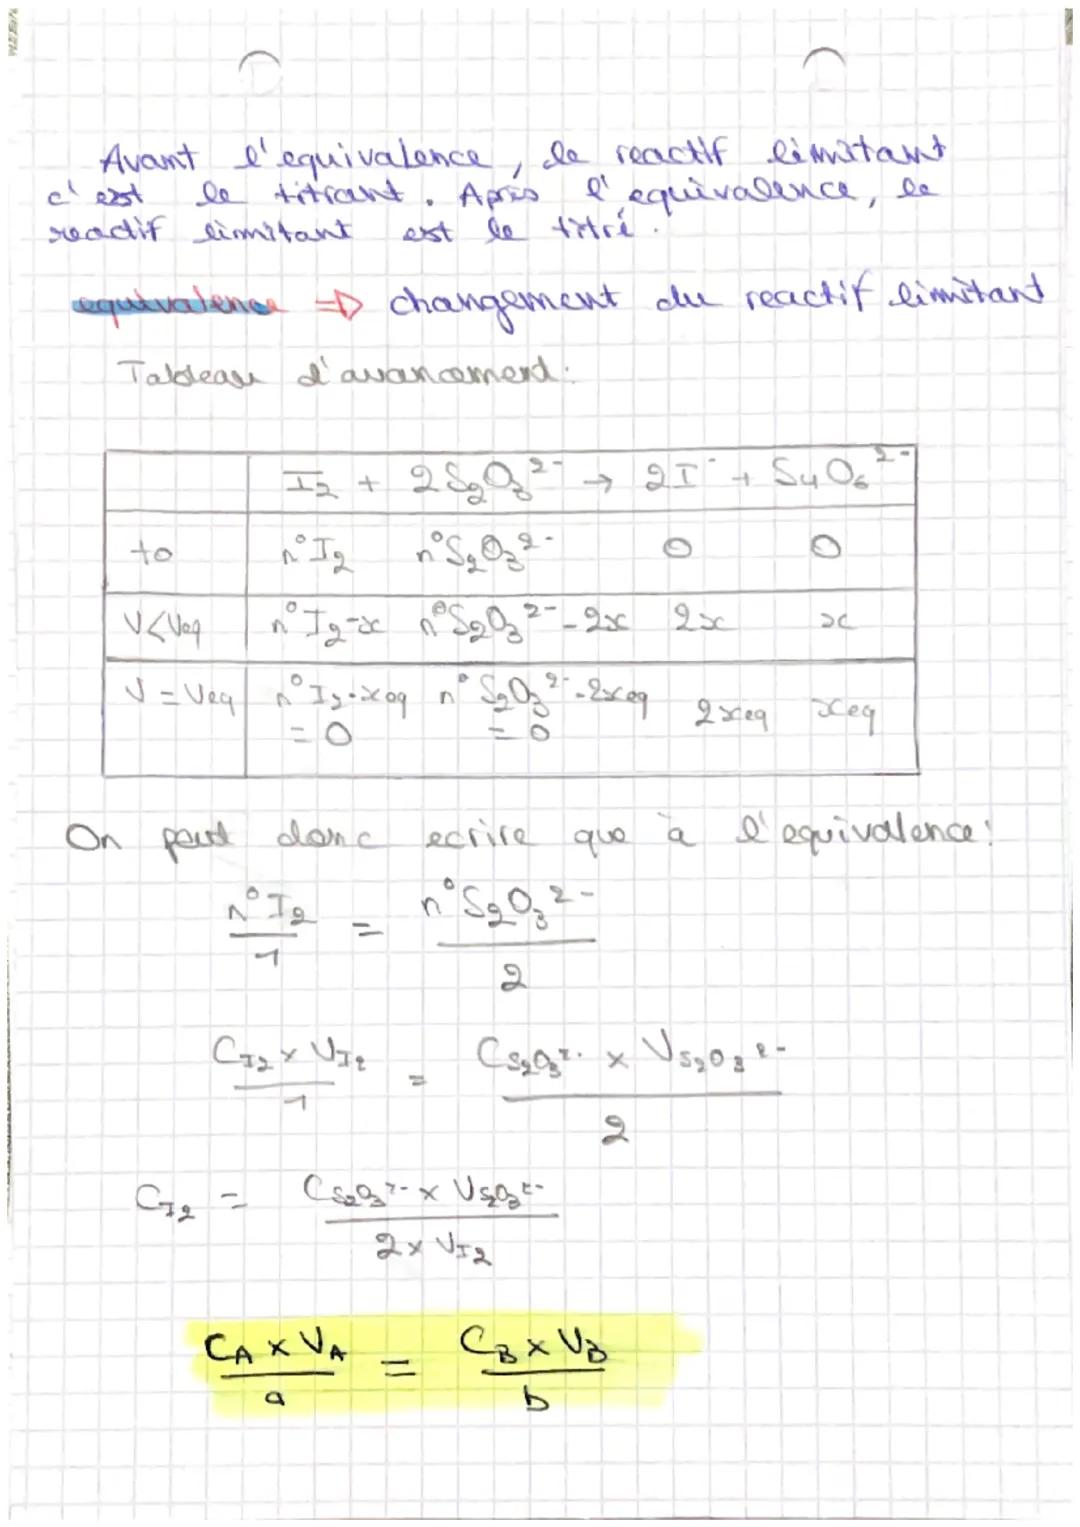 Avant l'equivalence, le reactif limitant
c'est le titrant. Après l'equivalence, le
reactif limitant est le titré.
equivalence ⇒ changement du reactif limitant
Tableau d'avancement:
I₂ + 2S₂O₃²⁻ → 2I⁻ + S₄O₆²⁻
to n°I₂ n°S₂O₃²⁻ 0 0
V<Veq n°I₂-x n°S₂O₃²⁻-2x 2x x
V=Veq n°I₂-xeq n°S₂O₃²⁻-2xeq 2xeq xeq
=0 =0
On peut donc ecrire que à l'equivalence:
n°I₂ / 1 = n°S₂O₃²⁻ / 2
C I₂ × V I₂ / 1 = C S₂O₃²⁻ × V S₂O₃²⁻ / 2
C I₂ = C S₂O₃²⁻ × V S₂O₃²⁻ / 2 × V I₂
CA × VA / a = CB × VB / b